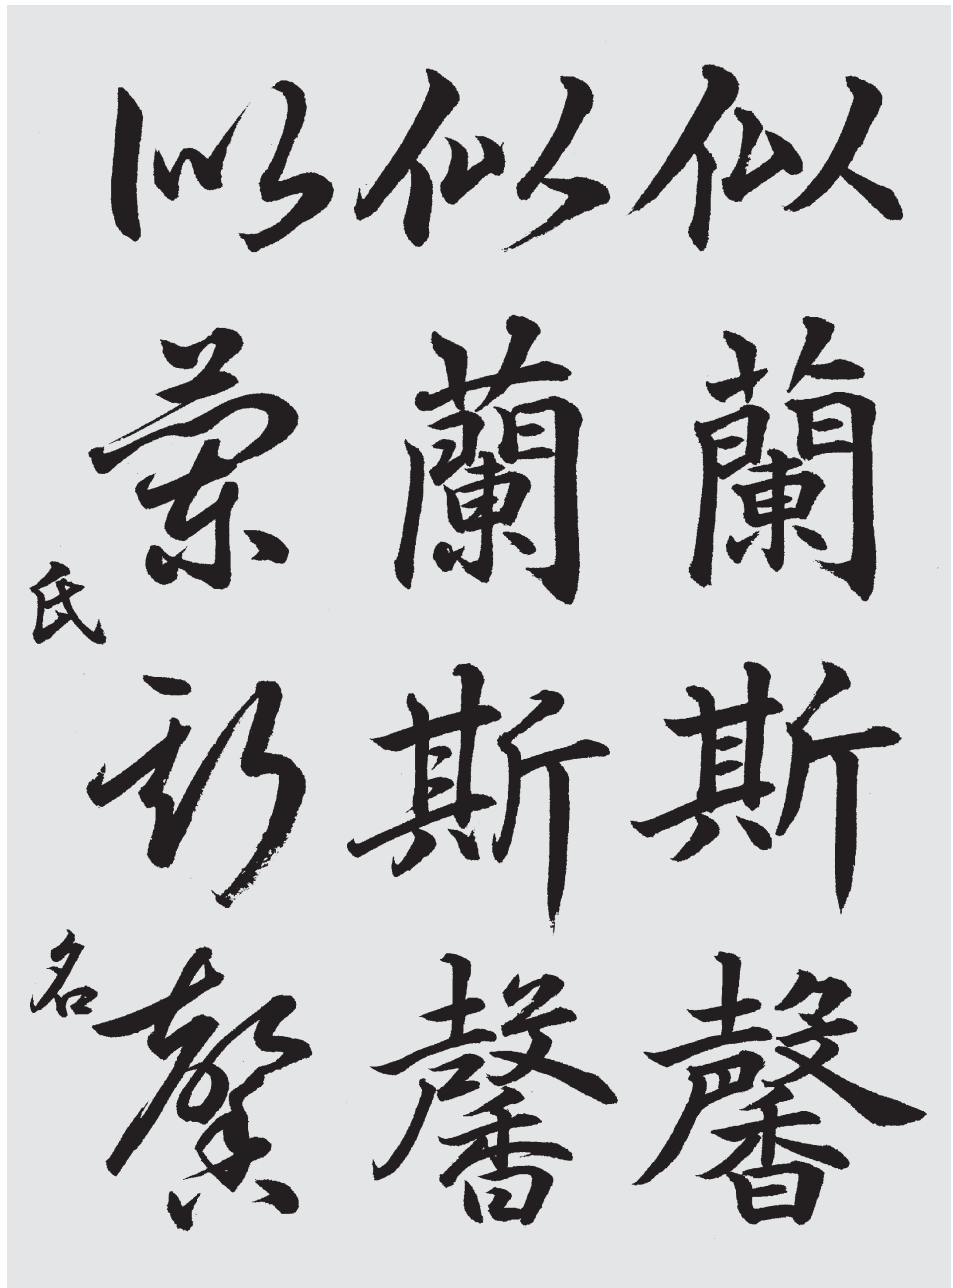 似蘭斯馨
似蘭斯馨
似蘭斯馨
氏名